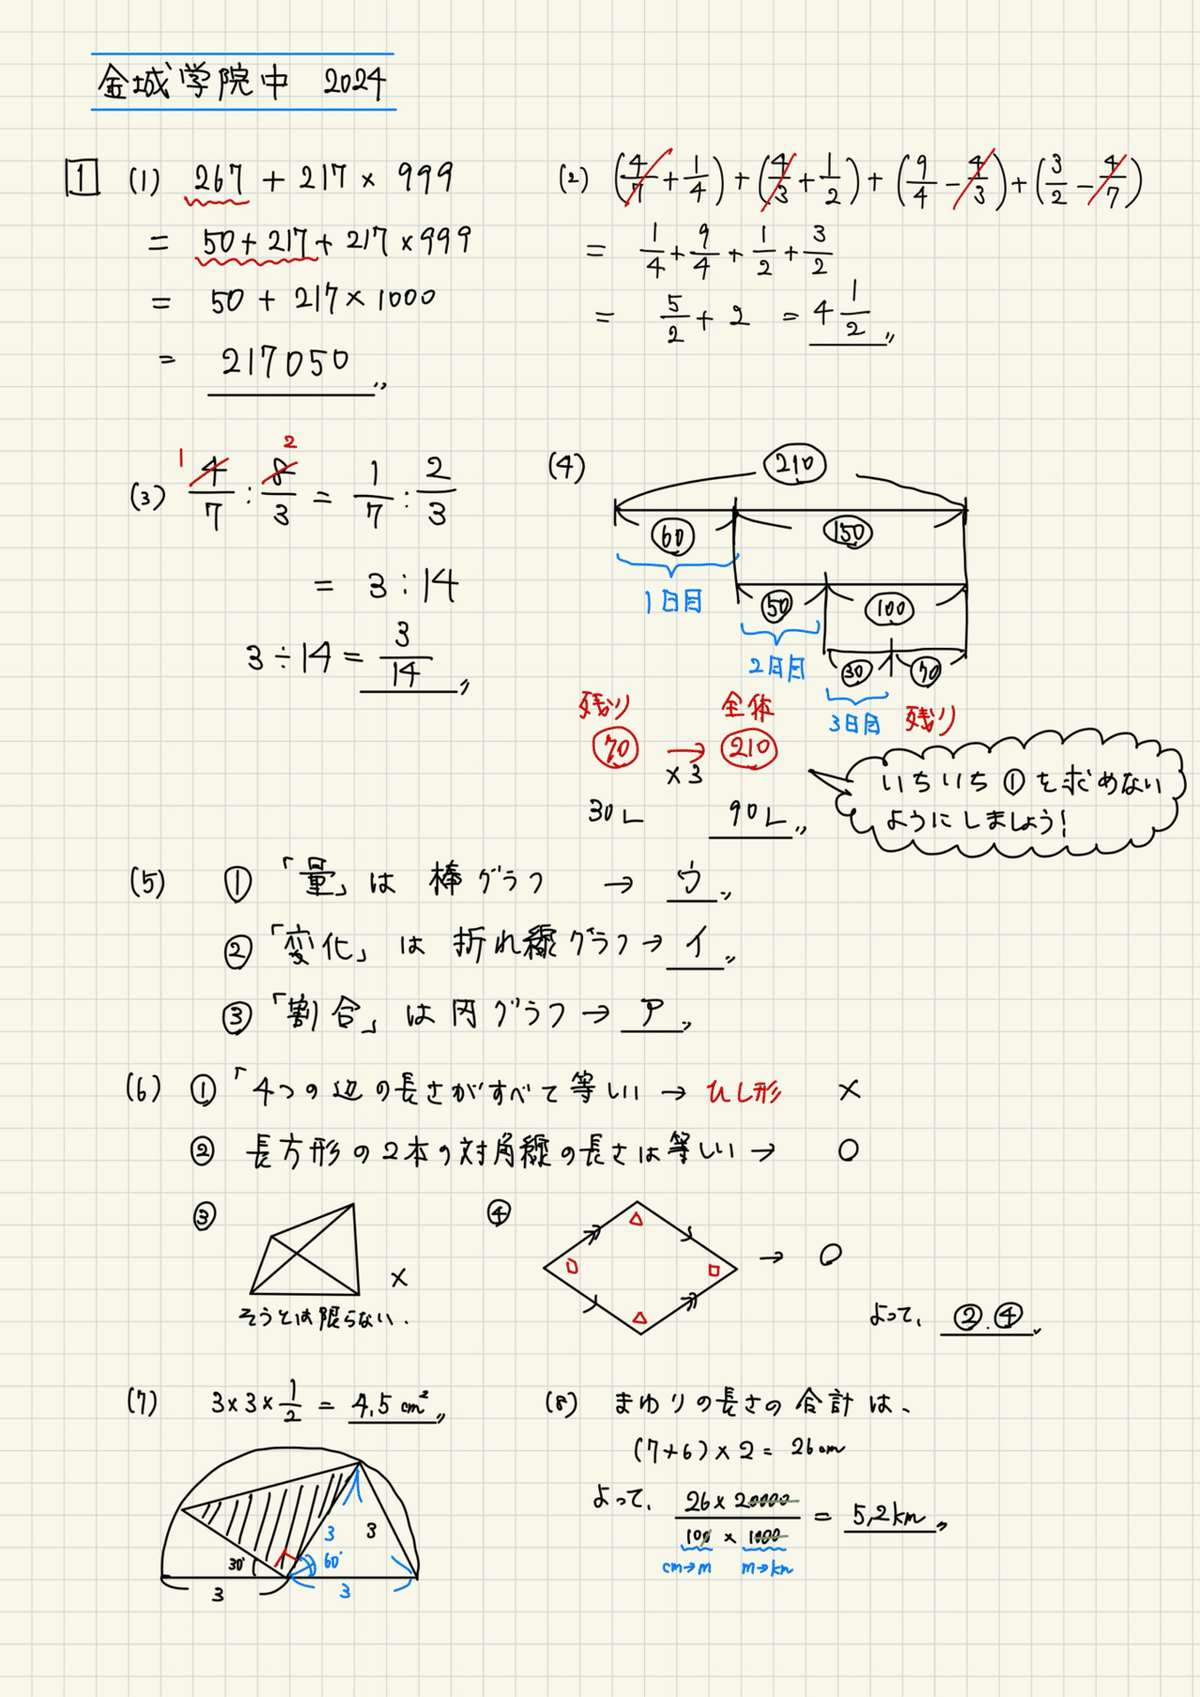 金城学院中 2024
1 (1) 267 + 217 × 999
= 50 + 217 + 217 × 999
= 50 + 217 × 1000
= 217050
(2) (4/7 + 1/4) + (4/3 + 1/2) + (9/4 - 4/3) + (3/2 - 4/7)
= 1/4 + 9/4 + 1/2 + 3/2
= 5/2 + 2 = 4 1/2
1 2
(3) 4/7 : 8/3 = 1/7 : 2/3
= 3 : 14
3 ÷ 14 = 3/14
(4) 210
60 150
1日目 50 100
2日目 30 70
3日目 残り
残り 全体
70 → 210
×3
30L 90L
いちいち①を求めない
ようにしましょう!
(5) ① 「量」は 棒グラフ → ウ
② 「変化」は 折れ線グラフ → イ
③ 「割合」は円グラフ → ア
(6) ① 「4つの辺の長さがすべて等しい → ひし形 ×
② 長方形の2本の対角線の長さは等しい → ○
③ ×
そうとは限らない.
④ → ○
よって、 ②.④
(7) 3×3×1/2 = 4.5 cm²
30° 60° 3 3
3 3
(8) まわりの長さの合計は、
(7+6)×2 = 26cm
よって、 26×20000/100×1000 = 5.2km
cm→m m→km